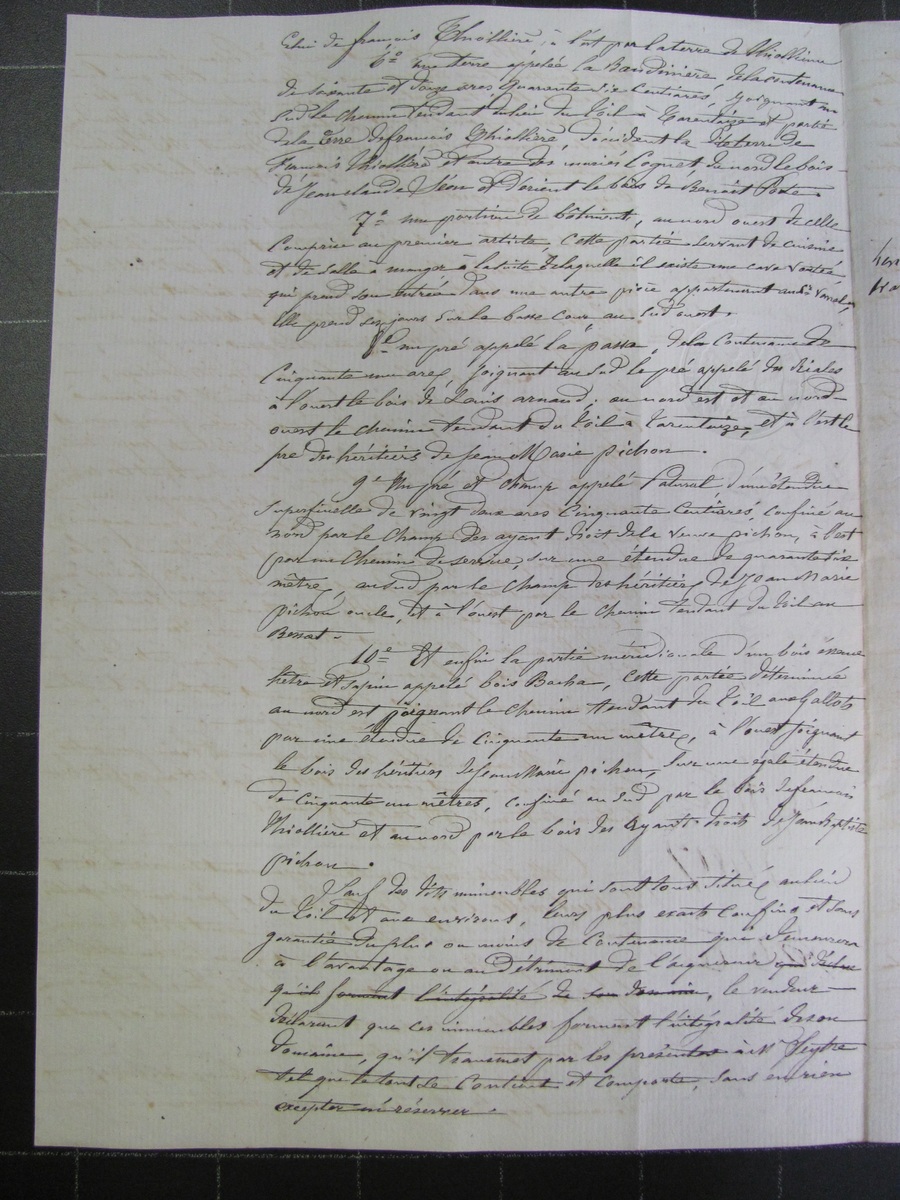 Celui de françois Thiollière, à l'est par la terre de Thiollière
6° une terre appelée la Baudinière, de la contenance
de soixante et douze ares quarante six centiares, joignant au
sud le chemin tendant du lieu du Toil à Tarentaize et partie
de la terre de françois Thiollière, d'occident la dite terre de
François Thiollière et autre des mariés Coquet, du nord le bois
de Jean claude Jéon et d'orient le bois de Benoît
7° une portion de bâtiment, au nord ouest de celle
Comprise au premier article, cette partie servant de cuisine
et de salle à manger à la suite de laquelle il existe une cave voutée
qui prend son entrée dans une autre pièce appartenant au
elle prend ses jours sur la basse cour au sud ouest.
8° un pré appelé la passa, de la Contenance de
Cinquante un ares, joignant au sud le pré appelé des
à l'ouest le bois de Louis arnaud, au nord est et au nord
ouest le chemin tendant du Toil à Tarentaize, et à l'est le
pré des héritiers de Jean Marie pichon.
9° Un pré et champ appelé d'une étendue
Superficielle de vingt deux ares Cinquante Centiares, confiné au
nord par le champ des ayant droit de la veuve pichon, à l'est
par un chemin de service, sur une étendue de quarante six
mètres, au sud par le champ des héritiers de Jean Marie
pichon oncle, et à l'ouest par le chemin tendant du Toil au
Bessat.
10° Et enfin la partie méridionale d'un bois essence
hêtre et sapin appelé bois Bacha, cette partie déterminée
au nord est joignant le chemin tendant du Toil aux Gallots
par une étendue de Cinquante un mètres, à l'ouest joignant
le bois des héritiers de Jean Marie pichon, sur une égale étendue
de Cinquante un mètres, confiné au sud par le bois de françois
Thiollière et au nord par le bois des Ayants droits de Jean Baptiste
pichon.
Sauf des dits immeubles qui sont tous situés au lieu
du Toil et aux environs, leurs plus exacts confins et sans
garantie du plus ou moins de Contenance qui demeurera
à l'avantage ou au détriment de l'acquéreur
qu'ils forment l'intégralité de son domaine, le vendeur
déclarant que ces immeubles forment l'intégralité de son
domaine, qu'il transmet par les présentes à Mr Seytre
tel que le tout se Contient et comporte, sans en rien
excepter ni réserver.